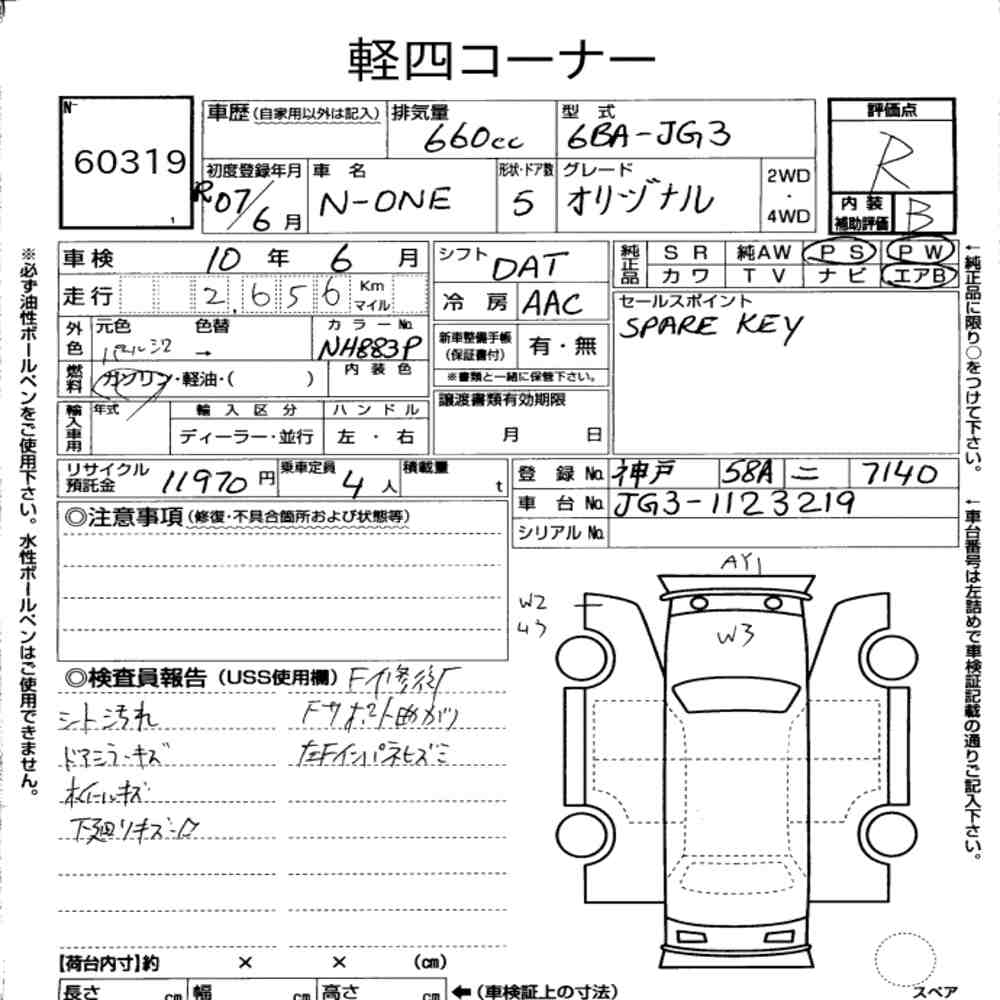 軽四コーナー
N-
60319
1
車歴(自家用以外は記入)
排気量
660cc
型 式
6BA-JG3
評価点
R
初度登録年月
R07/6月
車 名
N-ONE
形状・ドア数
5
グレード
オリジナル
2WD
・
4WD
内 装
補助評価
B
車検 10 年 6 月
シフト
DAT
純正品
S R 純AW P S P W
カワ T V ナビ エアB
走行 2,656 Km
マイル
冷 房 AAC
セールスポイント
SPARE KEY
外色
元色 色替
→
カラーNo.
NH883P
新車整備手帳
(保証書付)
有・無
※書類と一緒に保管下さい。
燃料
ガソリン・軽油・( )
内 装 色
譲渡書類有効期限
月 日
輸入車用
年式
輸 入 区 分
ハ ン ド ル
ディーラー・並行
左 ・ 右
リサイクル
預託金
11970 円
乗車定員
4 人
積載量
t
登 録 No. 神戸 58A ニ 7140
車 台 No. JG3-1123219
シリアル No.
◎注意事項(修復・不具合箇所および状態等)
AY1
W2
W3
◎検査員報告(USS使用欄)
F修復
シート汚れ
Fサポート曲がり
ドアミラーキズ
左Fインパネヒズミ
ホイールキズ
下廻りキズ
【荷台内寸】約 × × (cm)
長さ cm 幅 cm 高さ cm ←(車検証上の寸法)
スペア
※必ず油性ボールペンをご使用下さい。水性ボールペンはご使用できません。
←純正品に限り○をつけて下さい。
←車台番号は左詰めで車検証記載の通りご記入下さい。